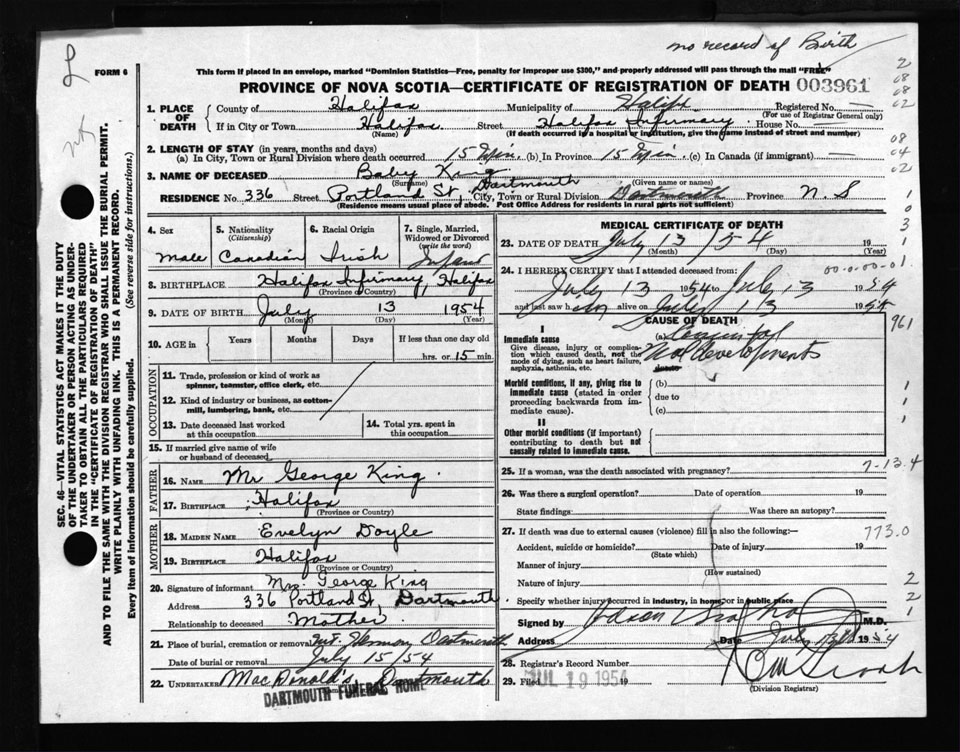 no record of Birth
FORM 6
This form if placed in an envelope, marked "Dominion Statistics—Free, penalty for improper use $300," and properly addressed will pass through the mail "FREE"
PROVINCE OF NOVA SCOTIA—CERTIFICATE OF REGISTRATION OF DEATH 003961
1. PLACE OF DEATH
County of Halifax Municipality of Registered No.
(For use of Registrar General only)
If in City or Town Halifax Street Halifax Infirmary House No.
(Name) (If death occurred in a hospital or institution, give the name instead of street and number)
2. LENGTH OF STAY (in years, months and days)
(a) In City, Town or Rural Division where death occurred 15 Min. (b) In Province 15 Min. (c) In Canada (if immigrant)
3. NAME OF DECEASED Baby King
(Surname) (Given name or names)
RESIDENCE No. 336 Street Portland St, Dartmouth City, Town or Rural Division Dartmouth Province N. S
(Residence means usual place of abode. Post Office Address for residents in rural parts not sufficient)
4. Sex
Male
5. Nationality
(Citizenship)
Canadian
6. Racial Origin
Irish
7. Single, Married, Widowed or Divorced
(write the word)
Infant
8. BIRTHPLACE Halifax Infirmary, Halifax
(Province or Country)
9. DATE OF BIRTH July 13 1954
(Month) (Day) (Year)
10. AGE in Years Months Days If less than one day old
hrs. or 15 min.
OCCUPATION
11. Trade, profession or kind of work as spinner, teamster, office clerk, etc.
12. Kind of industry or business, as cotton-mill, lumbering, bank, etc.
13. Date deceased last worked at this occupation
14. Total yrs. spent in this occupation
15. If married give name of wife or husband of deceased
FATHER
16. NAME Mr George King
17. BIRTHPLACE Halifax
(Province or Country)
MOTHER
18. MAIDEN NAME Evelyn Doyle
19. BIRTHPLACE Halifax
(Province or Country)
20. Signature of informant Mrs. George King
Address 336 Portland St, Dartmouth
Relationship to deceased Mother
21. Place of burial, cremation or removal Mt. Hermon Dartmouth
Date of burial or removal July 15/54
22. UNDERTAKER MacDonald's, Dartmouth
DARTMOUTH FUNERAL HOME
MEDICAL CERTIFICATE OF DEATH
23. DATE OF DEATH July 13/54 19
(Month) (Day) (Year)
24. I HEREBY CERTIFY that I attended deceased from:
July 13 1954 to July 13 1954
and last saw him alive on July 13 1954
CAUSE OF DEATH
I
Immediate cause
Give disease, injury or complication which caused death, not the mode of dying, such as heart failure, asphyxia, asthenia, etc.
(a)
developments
due to
Morbid conditions, if any, giving rise to immediate cause (stated in order proceeding backwards from immediate cause).
(b)
due to
(c)
II
Other morbid conditions (if important) contributing to death but not causally related to immediate cause.
25. If a woman, was the death associated with pregnancy?
26. Was there a surgical operation? Date of operation 19
State findings: Was there an autopsy?
27. If death was due to external causes (violence) fill in also the following:—
Accident, suicide or homicide? Date of injury 19
(State which)
Manner of injury
(How sustained)
Nature of injury
Specify whether injury occurred in industry, in home or in public place
Signed by M.D.
Address Date July 13 1954
28. Registrar's Record Number
29. Filed JUL 19 1954 19
(Division Registrar)
SEC. 46—VITAL STATISTICS ACT MAKES IT THE DUTY OF THE UNDERTAKER OR PERSON ACTING AS UNDERTAKER TO OBTAIN ALL THE PARTICULARS REQUIRED IN THE "CERTIFICATE OF REGISTRATION OF DEATH" AND TO FILE THE SAME WITH THE DIVISION REGISTRAR WHO SHALL ISSUE THE BURIAL PERMIT.
WRITE PLAINLY WITH UNFADING INK. THIS IS A PERMANENT RECORD.
Every item of information should be carefully supplied. (See reverse side for instructions.)
2
08
08
02
08
04
02
1
0
3
1
00-0-00-01
961
1
1
1
7-13-4
773.0
2
2
1